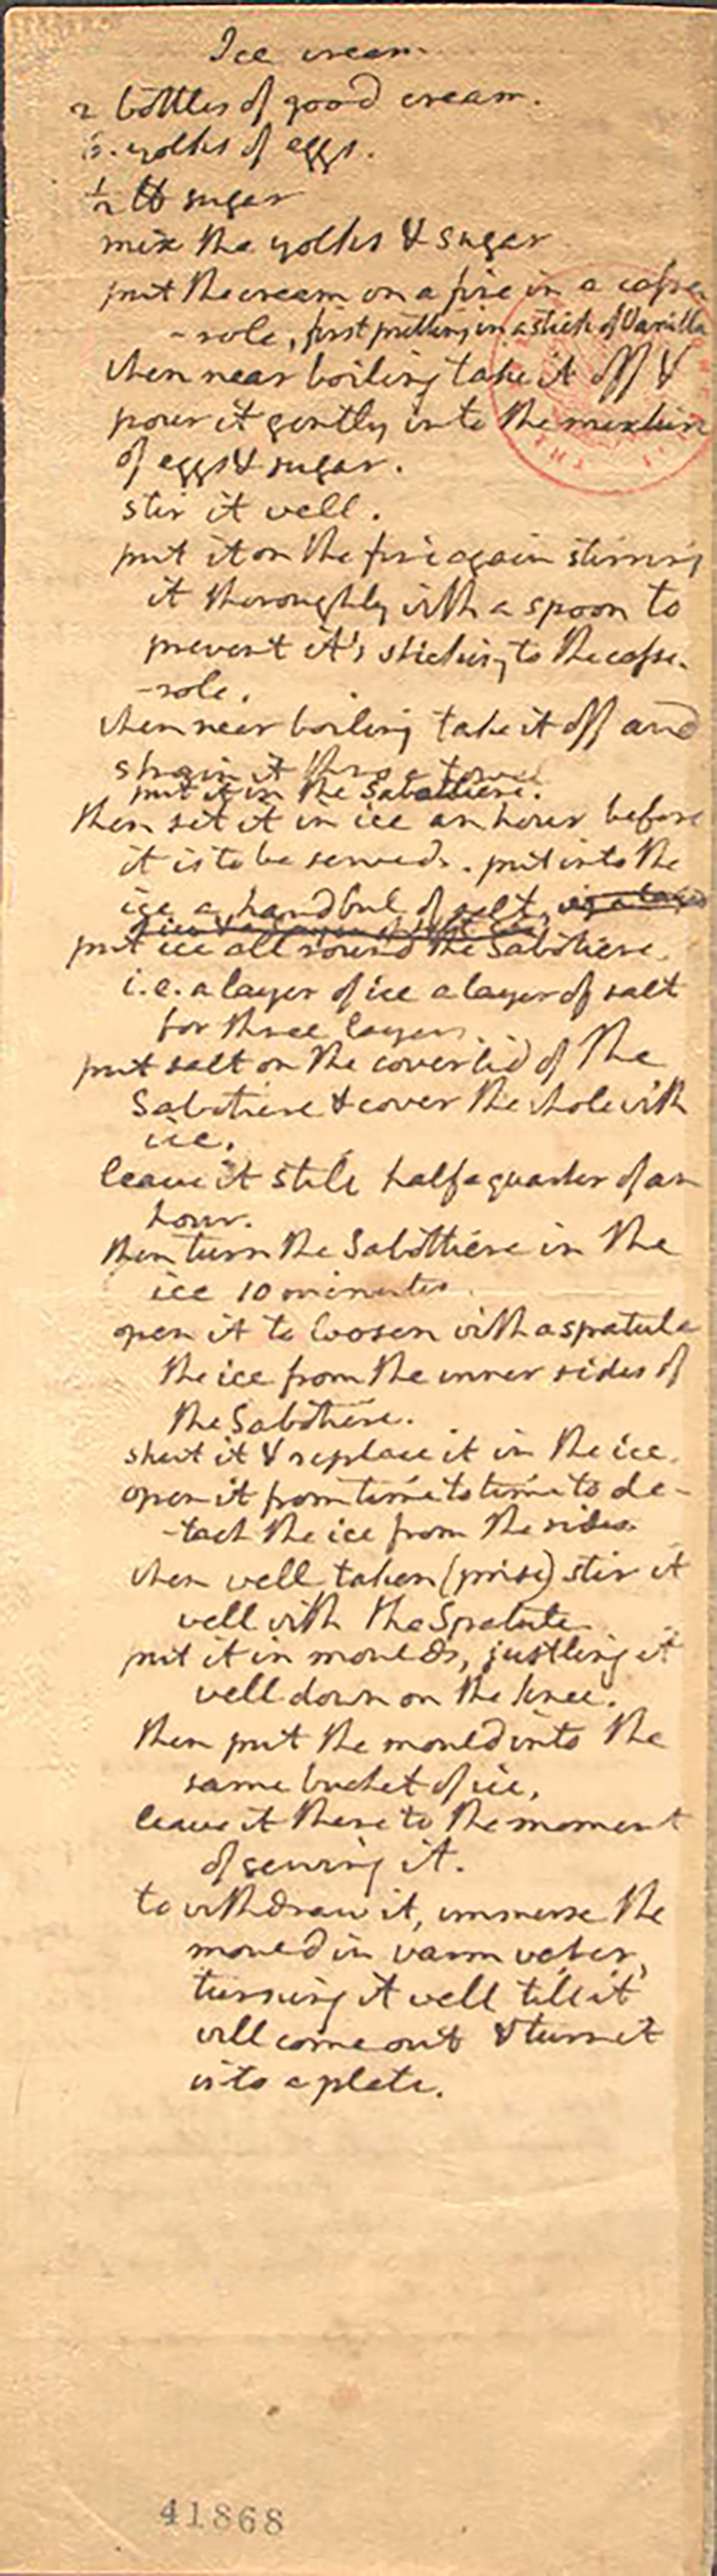 Ice cream.
2 bottles of good cream.
6. yolks of eggs.
1/2 lb sugar
mix the yolks & sugar
put the cream on a fire in a casse
- role, first putting in a stick of Vanilla
when near boiling take it off &
pour it gently into the mixture
of eggs & sugar.
stir it well.
put it on the fire again stirring
it thoroughly with a spoon to
prevent it's sticking to the casse-
-role.
when near boiling take it off and
strain it thro' a towel
put it in the Sabottiere.
then set it in ice an hour before
it is to be served. put into the
ice a handful of salt,
put ice all round the Sabottiere
i.e. a layer of ice a layer of salt
for three layers.
put salt on the coverlid of the
Sabotiere & cover the whole with
ice.
leave it still half a quarter of an
hour.
then turn the Sabottiere in the
ice 10 minutes
open it to loosen with a spatula
the ice from the inner sides of
the Sabotiere.
shut it & replace it in the ice
open it from time to time to de-
-tach the ice from the sides
when well taken (prise) stir it
well with the Spatula.
put it in moulds, justling it
well down on the knee.
then put the mould into the
same bucket of ice.
leave it there to the moment
of serving it.
to withdraw it, immerse the
mould in warm water,
turning it well till it
will come out & turn it
into a plate.
41868